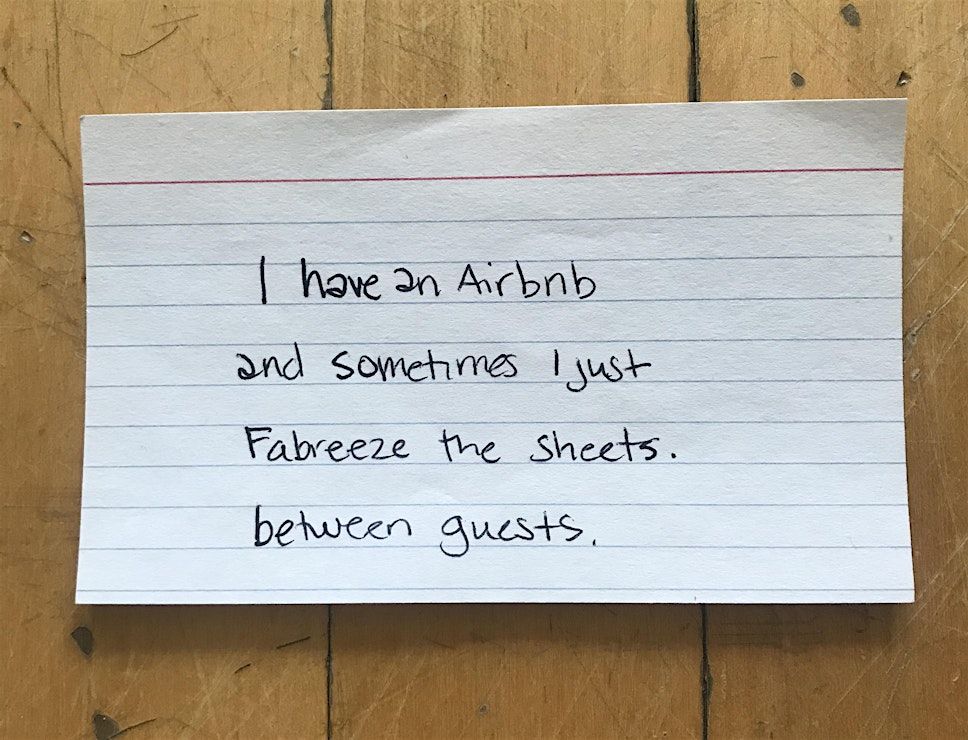 I have an Airbnb
and sometimes I just
Fabreeze the sheets.
between guests.